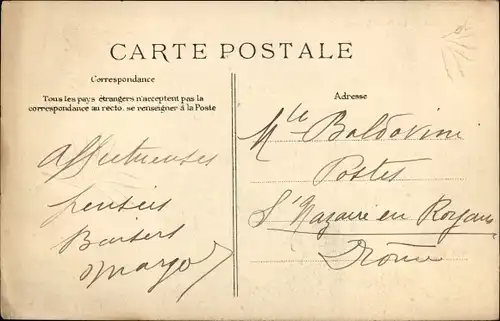 CARTE POSTALE
Correspondance
Tous les pays étrangers n'acceptent pas la
correspondance au recto. se renseigner à la Poste
Affectueuses
pensées
Baisers
Margo
Adresse
Mlle Baldovini
Postes
St Nazaire en Royans
Drôme